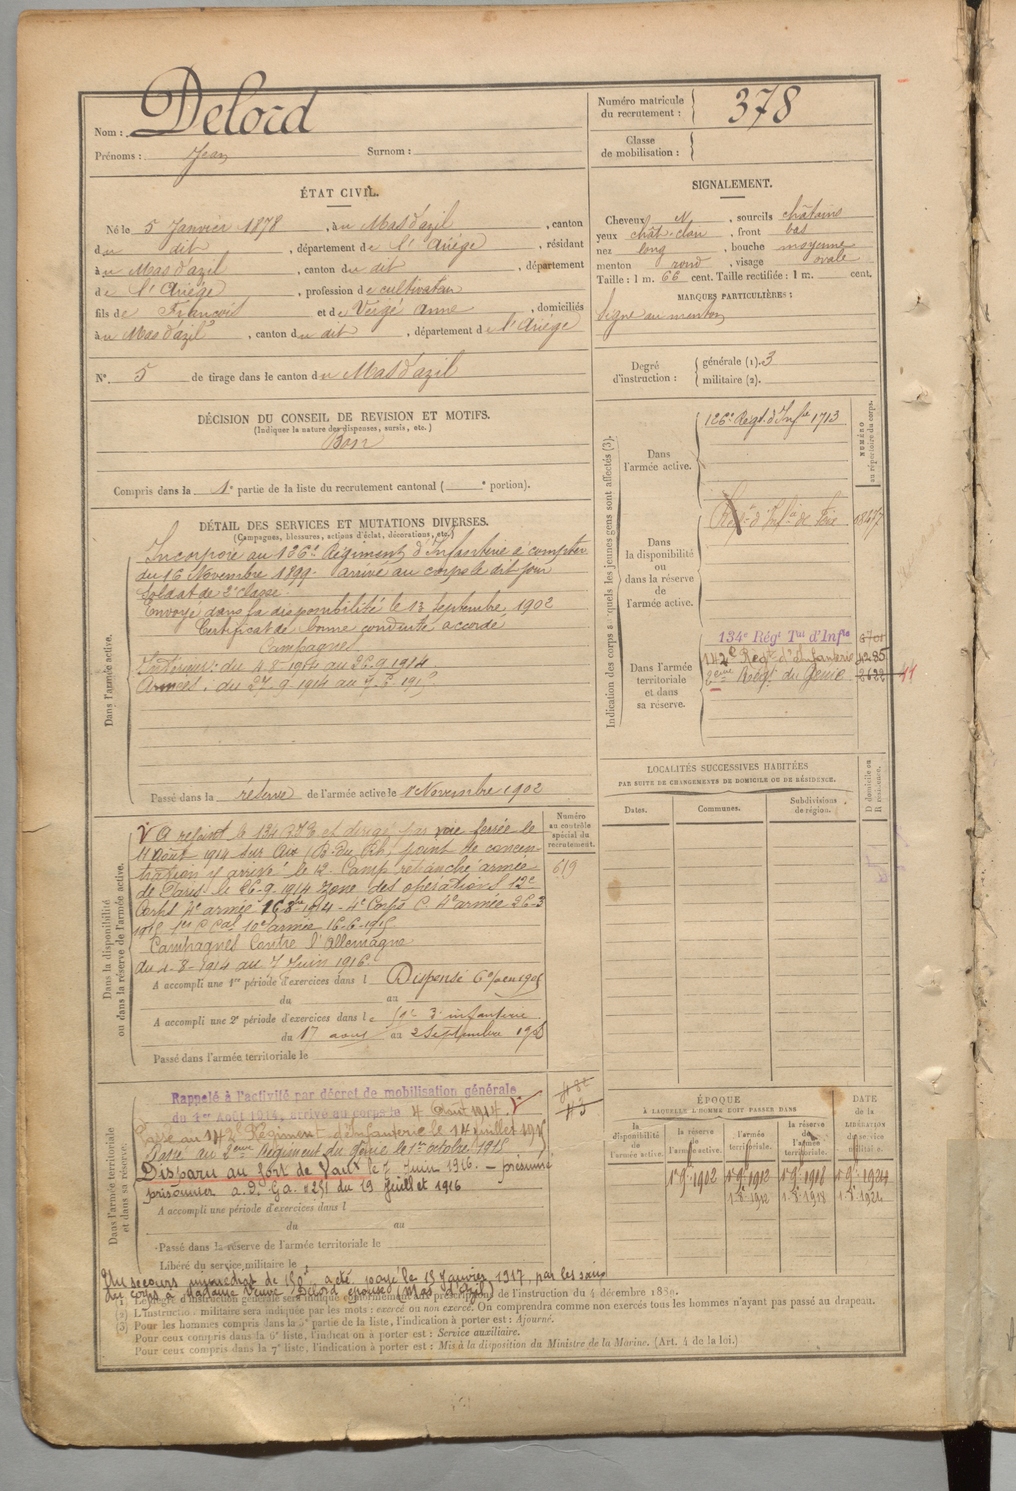 Nom : Delord
Prénoms : Jean Surnom :
Numéro matricule du recrutement : 378
Classe de mobilisation :
ÉTAT CIVIL.
Né le 5 Janvier 1878, à u Mas d'azil, canton
d u dit, département de l'Ariège, résidant
à u Mas d'azil, canton du dit, département
de l'Ariège, profession de cultivateur
fils de François et de Vergé Anne, domiciliés
à u Mas d'azil, canton du dit, département de l'Ariège
N° 5 de tirage dans le canton du Mas d'azil
SIGNALEMENT.
Cheveux N, sourcils châtains
yeux chât. clair, front bas
nez long, bouche moyenne
menton rond, visage ovale
Taille : 1 m. 66 cent. Taille rectifiée : 1 m. cent.
MARQUES PARTICULIÈRES :
Signe au menton
Degré d'instruction : générale (1). 3
militaire (2).
DÉCISION DU CONSEIL DE REVISION ET MOTIFS.
(Indiquer la nature des dispenses, sursis, etc.)
Bon
Compris dans la 1e partie de la liste du recrutement cantonal ( e portion).
DÉTAIL DES SERVICES ET MUTATIONS DIVERSES.
(Campagnes, blessures, actions d'éclat, décorations, etc.)
Dans l'armée active.
Incorporé au 126e Régiment d'Infanterie à compter
du 16 Novembre 1899. arrivé au corps le dit jour
Soldat de 2e classe.
Envoyé dans la disponibilité le 13 Septembre 1902
Certificat de bonne conduite accordé
Campagnes
Intérieur : du 4-8-1914 au 26.9.1914.
Armées : du 27.9.1914 au
Passé dans la réserve de l'armée active le 1er Novembre 1902
Indication des corps auxquels les jeunes gens sont affectés (3).
NUMÉRO au répertoire du corps.
Dans l'armée active.
126e Régt. d'Infie 1713
Dans la disponibilité ou dans la réserve de l'armée active.
Régt d'Infie de Foix
Dans l'armée territoriale et dans sa réserve.
134e Régt Tal d'Infie
142e Régt d'Infanterie 4285
2eme Régt du Génie
LOCALITÉS SUCCESSIVES HABITÉES
PAR SUITE DE CHANGEMENTS DE DOMICILE OU DE RÉSIDENCE.
Dates. Communes. Subdivisions de région. D domicile ou R résidence.
Dans la disponibilité ou dans la réserve de l'armée active.
Numéro au contrôle spécial du recrutement.
619
A rejoint le 134 R.I.T. et dirigé par voie ferrée le
11 août 1914 sur Aix (B. du Rh.) point de concen-
tration y arrivé le 12. Camp retranché armée
de Paris le 26-9-1914 zone des opérations 12e
Corps 4e armée
1915 10e armée 16-6-1915
Campagnes Contre l'Allemagne
du 4-8-1914 au 7 Juin 1916.
A accompli une 1re période d'exercices dans l Dispensé en 1905
du au
A accompli une 2e période d'exercices dans le 59e d'infanterie
du 17 août au 2 Septembre
Passé dans l'armée territoriale le
Dans l'armée territoriale et dans sa réserve.
Rappelé à l'activité par décret de mobilisation générale
du 1er Août 1914, arrivé au corps le 4 Août 1914.
Passé au 142e Régiment d'Infanterie le 14 juillet
Passé au 2eme Régiment du Génie le 1er octobre 1915
Disparu au fort de Vaux le 7 Juin 1916. — présumé
prisonnier du 19 Juillet 1916
A accompli une période d'exercices dans l
du au
Passé dans la réserve de l'armée territoriale le
Libéré du service militaire le
Un secours immédiat de 150f a été payé le 13 Janvier 1917, par les soins
du corps à Madame Veuve Delord épouse (Mas d'Azil)
ÉPOQUE
À LAQUELLE L'HOMME DOIT PASSER DANS
DATE de la LIBÉRATION du service militaire.
la disponibilité de l'armée active. la réserve de l'armée active. l'armée territoriale. la réserve de l'armée territoriale.
1er 9bre 1902 1er 9bre 1912 1er 9bre 1918 1er 9bre 1924
de l'instruction du 4 décembre 1889.
(2) L'instruction militaire sera indiquée par les mots : exercé ou non exercé. On comprendra comme non exercés tous les hommes n'ayant pas passé au drapeau.
(3) Pour les hommes compris dans la 5e partie de la liste, l'indication à porter est : Ajourné.
Pour ceux compris dans la 6e liste, l'indication à porter est : Service auxiliaire.
Pour ceux compris dans la 7e liste, l'indication à porter est : Mis à la disposition du Ministre de la Marine. (Art. 4 de la loi.)